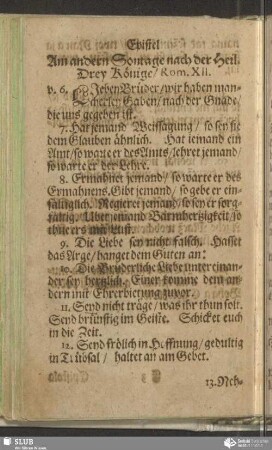 Epistel
Am andern Sontage nach der Heil.
Drey Könige/ Rom. XII.
v. 6. Lieben Brüder/ wir haben man-
cherley Gaben/ nach der Gnade/
die uns gegeben ist.
7. Hat jemand Weissagung/ so sey sie
dem Glauben ähnlich. Hat jemand ein
Amt/ so warte er des Amts/ lehret jemand/
so warte er der Lehre.
8. Ermahnet jemand/ so warte er des
Ermahnens. Gibt jemand/ so gebe er ein-
fältiglich. Regieret jemand/ so sey er sorg-
fältig. Ubet jemand Barmhertzigkeit/ so
thue ers mit Lust.
9. Die Liebe sey nicht falsch. Hasset
das Arge/ hanget dem Guten an:
10. Die Brüderliche Liebe unter einan-
der sey hertzlich. Einer komme dem an-
dern mit Ehrerbietung zuvor.
11. Seyd nicht träge/ was ihr thun solt.
Seyd brünstig im Geiste. Schicket euch
in die Zeit.
12. Seyd frölich in Hoffnung/ gedultig
in Trübsal/ haltet an am Gebet.
13. Neh-
SLUB
Wir führen Wissen.